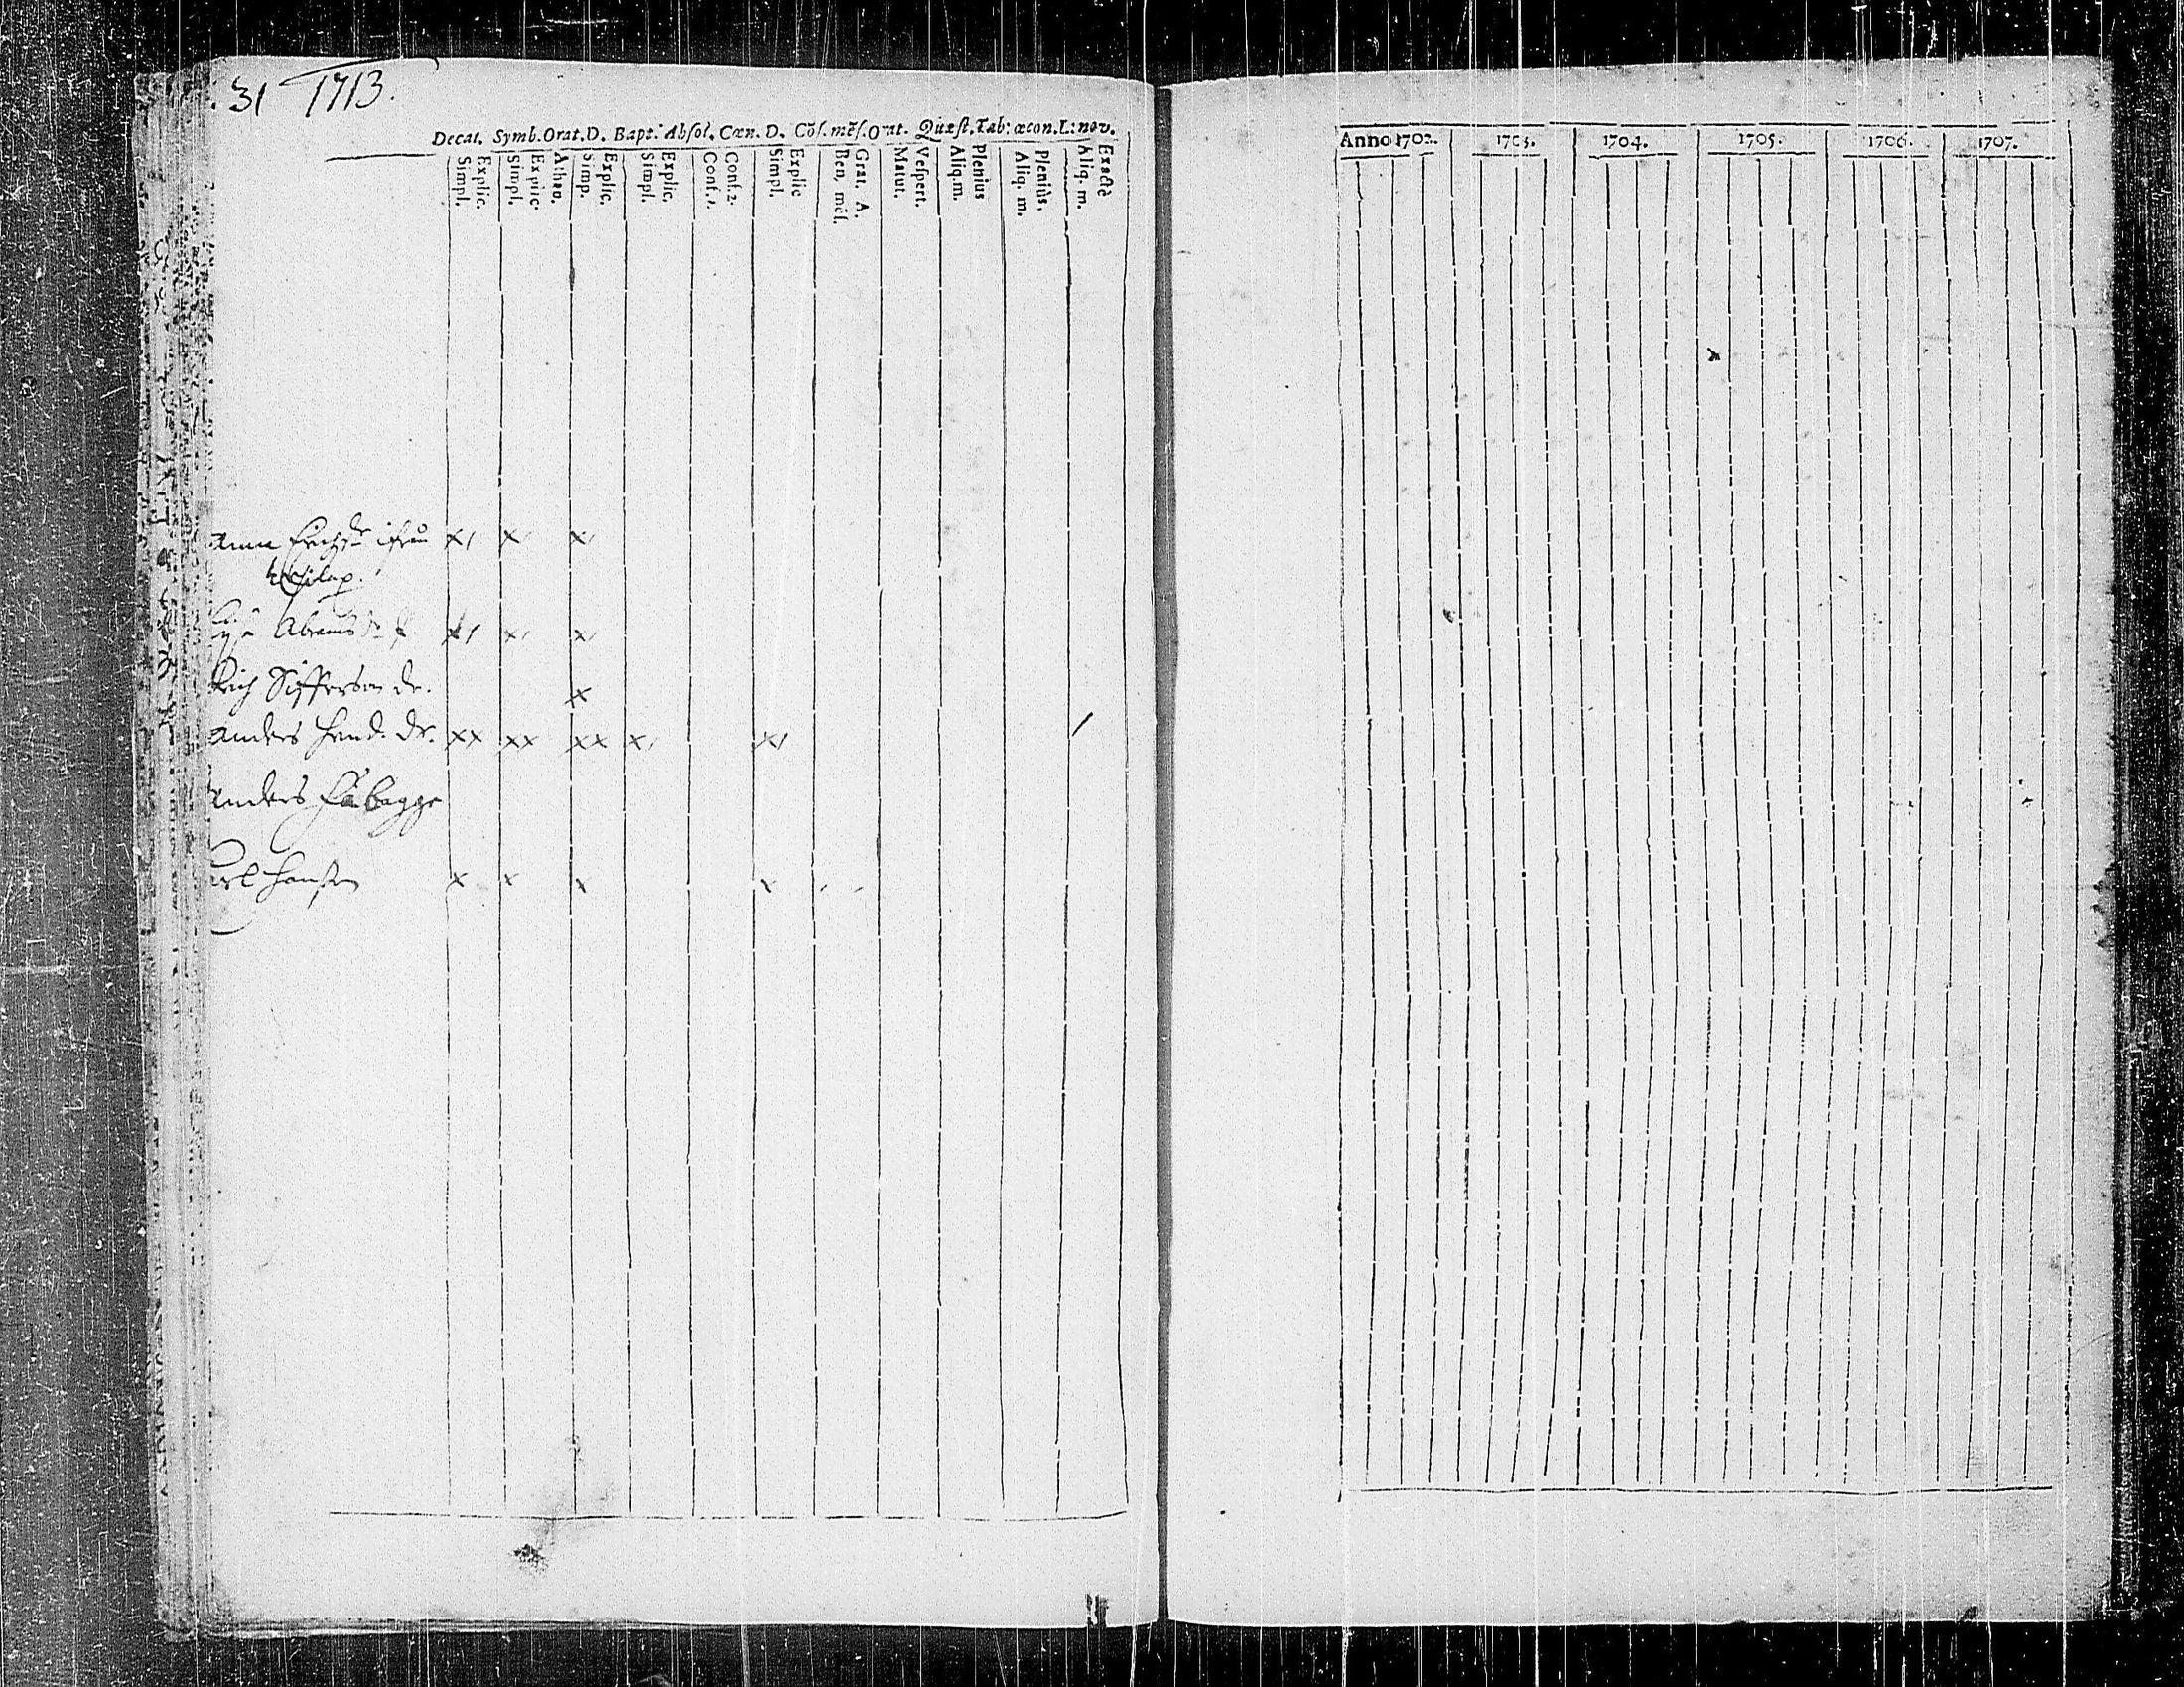 31 1713.
Decat. Symb. Orat. D. Bapt. Absol. Cœn. D. Cõs. mẽs. Orat. Quæst. Tab: œcon. L: nov.
Explic. Simpl.
Explic. Simpl.
Athan.
Explic. Simp.
Explic. Simpl.
Conf. 2. Conf. 1.
Explic Simpl.
Grat. A. Ben. mẽs.
Vespert. Matut.
Plenius Aliq. m.
Pleniùs. Aliq. m.
Exactè Aliq. m.
Anna x x x
Abrams x x x
Sifferson dr. x
Anders Hend. dr. xx xx xx x x
Anders Fåbagge
Hansson x x x x
Anno 1702. 1703. 1704. 1705. 1706. 1707.